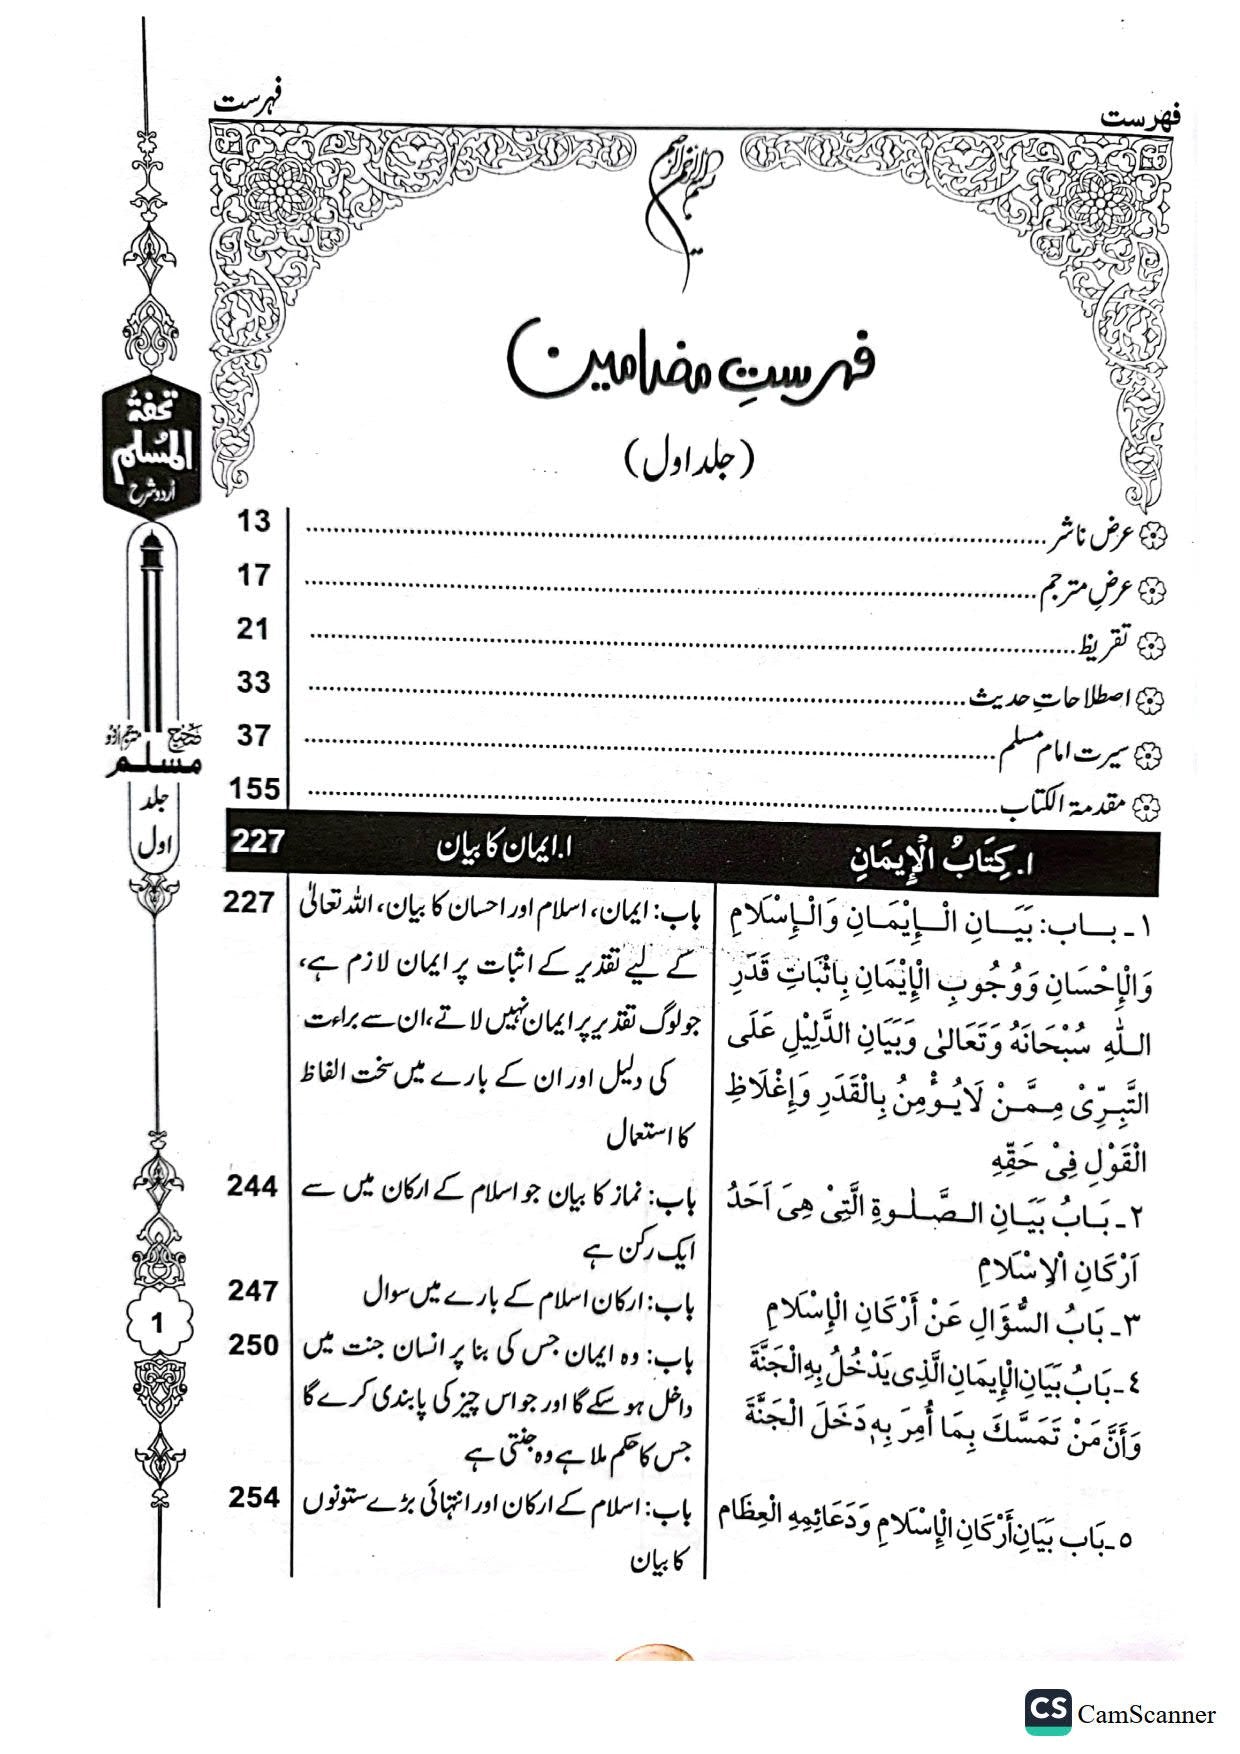 فہرست
فہرست
بسم اللہ الرحمن الرحیم
فہرستِ مضامین
(جلد اول)
عرض ناشر ........ 13
عرضِ مترجم ........ 17
تقریظ ........ 21
اصطلاحاتِ حدیث ........ 33
سیرت امام مسلم ........ 37
مقدمۃ الکتاب ........ 155
۱. كِتَابُ الْإِيمَانِ
۱. ایمان کا بیان
227
۱ـ بـاب: بَيَـانِ الْـإِيْمَـانِ وَالْـإِسْلَامِ
وَالْإِحْسَانِ وَوُجُوبِ الْإِيْمَانِ بِاثْبَاتِ قَدَرِ
اللّٰهِ سُبْحَانَهُ وَتَعَالىٰ وَبَيَانِ الدَّلِيْلِ عَلَى
التَّبِرِّىْ مِـمَّـنْ لَايُـؤْمِنُ بِالْقَدَرِ وَإِغْلَاظِ
الْقَوْلِ فِىْ حَقِّهِ
باب: ایمان، اسلام اور احسان کا بیان، اللہ تعالیٰ
کے لیے تقدیر کے اثبات پر ایمان لازم ہے،
جو لوگ تقدیر پر ایمان نہیں لاتے، ان سے براءت
کی دلیل اور ان کے بارے میں سخت الفاظ
کا استعمال
227
۲ـ بَـابُ بَيَـانِ الـصَّـلٰـوةِ الَّتِىْ هِىَ اَحَدُ
اَرْكَانِ الْاِسْلَامِ
باب: نماز کا بیان جو اسلام کے ارکان میں سے
ایک رکن ہے
244
۳ـ بَابُ السُّؤَالِ عَنْ أَرْكَانِ الْإِسْلَامِ
باب: ارکان اسلام کے بارے میں سوال
247
٤ـ بَابُ بَيَانِ الْإِيمَانِ الَّذِى يَدْخُلُ بِهِ الْجَنَّةَ
وَأَنَّ مَنْ تَمَسَّكَ بِمَا أُمِرَ بِهٖ دَخَلَ الْجَنَّةَ
باب: وہ ایمان جس کی بنا پر انسان جنت میں
داخل ہو سکے گا اور جو اس چیز کی پابندی کرے گا
جس کا حکم ملا ہے وہ جنتی ہے
250
٥ـ بَاب بَيَانِ أَرْكَانِ الْإِسْلَامِ وَدَعَائِمِهِ الْعِظَامِ
باب: اسلام کے ارکان اور انتہائی بڑے ستونوں
کا بیان
254
تحفۃ
المُسلم
اُردو شرح
صحیح
مترجم اُردُو
مسلم
جلد
اول
1
CS CamScanner